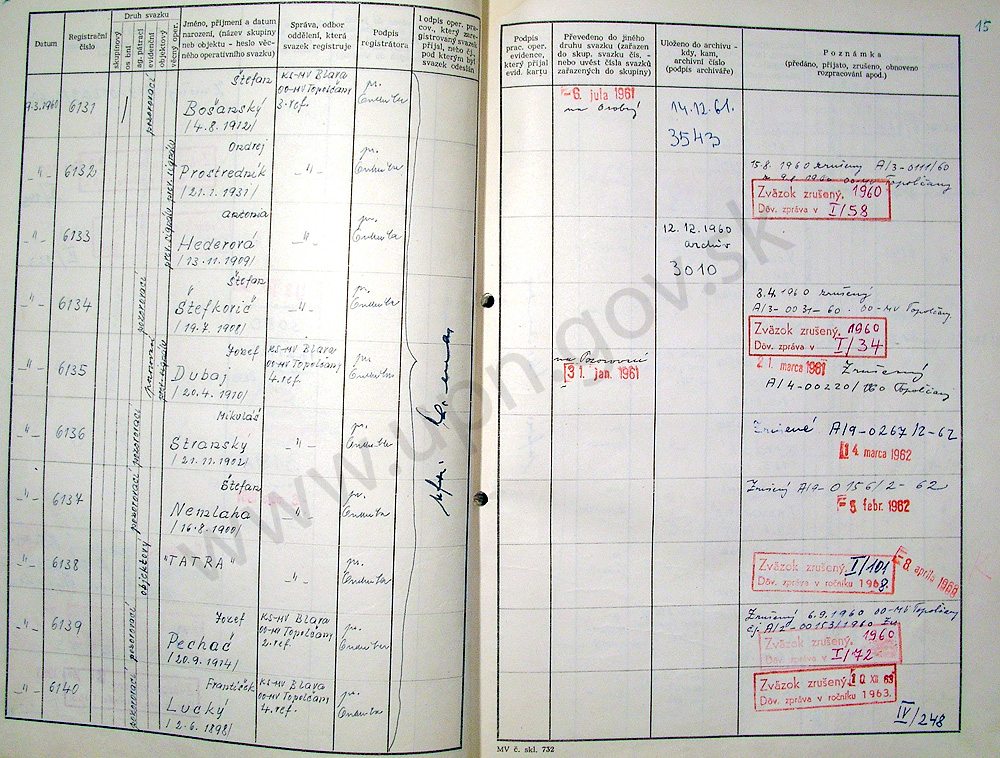 15
Datum
Registrační číslo
Druh svazku
skupinový
osobní
ag. pátrací
evidenční
objektový
Jméno, příjmení a datum narození, (název skupiny neb objektu - heslo věcného operativního svazku)
Správa, odbor oddělení, která svazek registruje
Podpis registrátora
Podpis oper. pracov., který zaregistrovaný svazek přijal, nebo čj. pod kterým byl svazek odeslán
Podpis prac. oper. evidence, který přijal evid. kartu
Převedeno do jiného druhu svazku (zařazen do skup. svazku čís. - nebo uvést čísla svazků zařazených do skupiny)
Uloženo do archivu - kdy, kam, archivní číslo (podpis archiváře)
Poznámka
(předáno, přijato, zrušeno, obnoveno rozpracování apod.)
9.3.1960 6131 pozorovací Štefan
Bošanský
/4.8.1912/
KS-MV Blava
OO-MV Topoľčany
3. ref.
pr.
- 6. júla 1961
na Osobný
14.12.61.
3543
-"- 6132 prev. signálu Ondrej
Prostredník
/21.1.1931/
-"-
pr.
15.8.1960 zrušený A/3-0111/60
OO-MV Topoľčany
Zväzok zrušený, 1960
Dôv. zpráva v I/58
-"- 6133 prev. signálu
Hederová
/13.11.1909/
-"-
pr.
12.12.1960
Archív
3010
-"- 6134 pozorovací Štefan
Štefkovič
/19.7.1900/
-"-
pr.
8.4.1960 zrušený
A/3-0031-60. OO-MV Topoľčany
Zväzok zrušený, 1960
Dôv. zpráva v I/34
-"- 6135 prev. signálu Jozef
Dubaj
/20.4.1910/
KS-MV Blava
OO-MV Topoľčany
4. ref.
pr.
na Pozorovací
31. jan. 1961
21. marca 1961 Zrušený
A/4-00220/60 Topoľčany
-"- 6136 pozorovací Mikuláš
Stranský
/21.11.1902/
-"-
pr.
Zrušené A/9-0267/2-62
14. marca 1962
-"- 6137 pozorovací Štefan
Nemlaha
/16.8.1900/
-"-
pr.
Zrušený A/9-0156/2-62
- 5. febr. 1962
-"- 6138 objektový "TATRA"
-"-
pr.
Zväzok zrušený, I/101
Dôv. zpráva v ročníku 1968.
- 8. apríla 1968
-"- 6139 pozorovací Jozef
Pechač
/20.9.1914/
KS-MV Blava
OO-MV Topoľčany
2. ref.
pr.
Zrušený 6.9.1960 OO-MV Topoľčany
čj. A/2-00153/1960
Zväzok zrušený, 1960
Dôv. zpráva v I/72
-"- 6140 pozorovací František
Lucký
/2.6.1898/
KS-MV Blava
OO-MV Topoľčany
4. ref.
pr.
Zväzok zrušený, 10 XII 63
Dôv. zpráva v ročníku 1963.
IV/248
MV č. skl. 732
www.upn.gov.sk